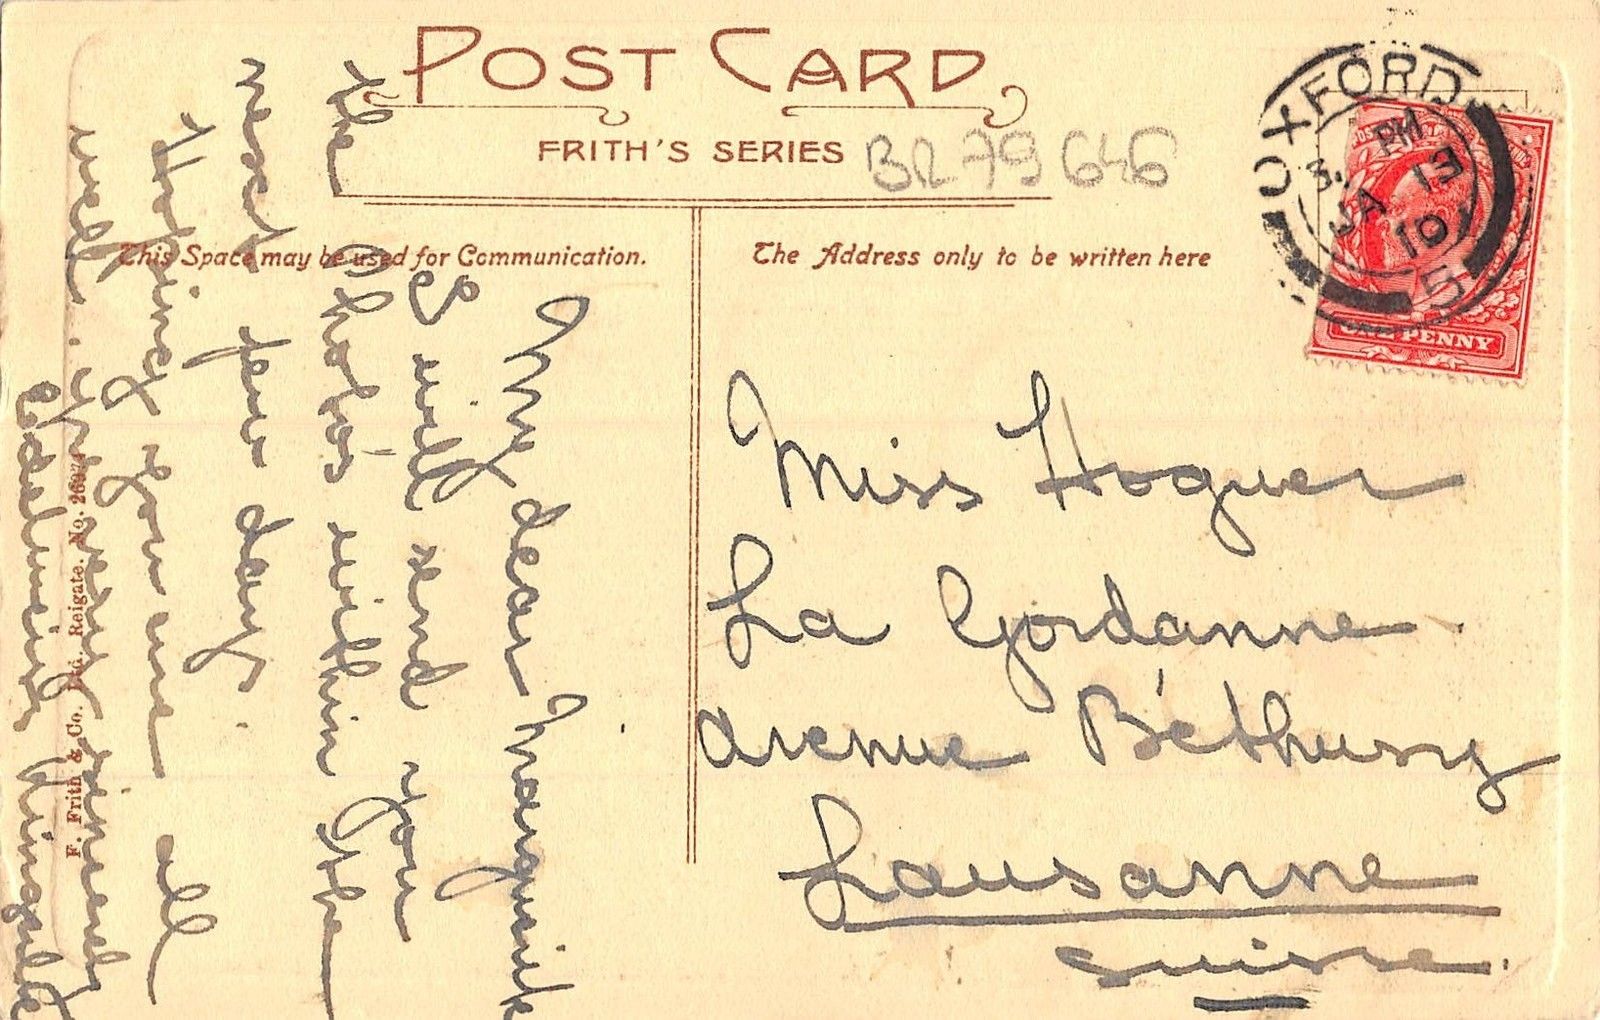 POST CARD
FRITH'S SERIES
BR79646
This Space may be used for Communication.
The Address only to be written here
OXFORD
3. PM
JA 13
10
5
ONE PENNY
Miss Hoguer
La Gordanne
Avenue Béthusy
Lausanne
Suisse.
My dear Marguerite
I will send you
the Photos within the
next few days.
Hoping you are all
well. very sincerely
F. Frith & Co. Ltd. Reigate. No.